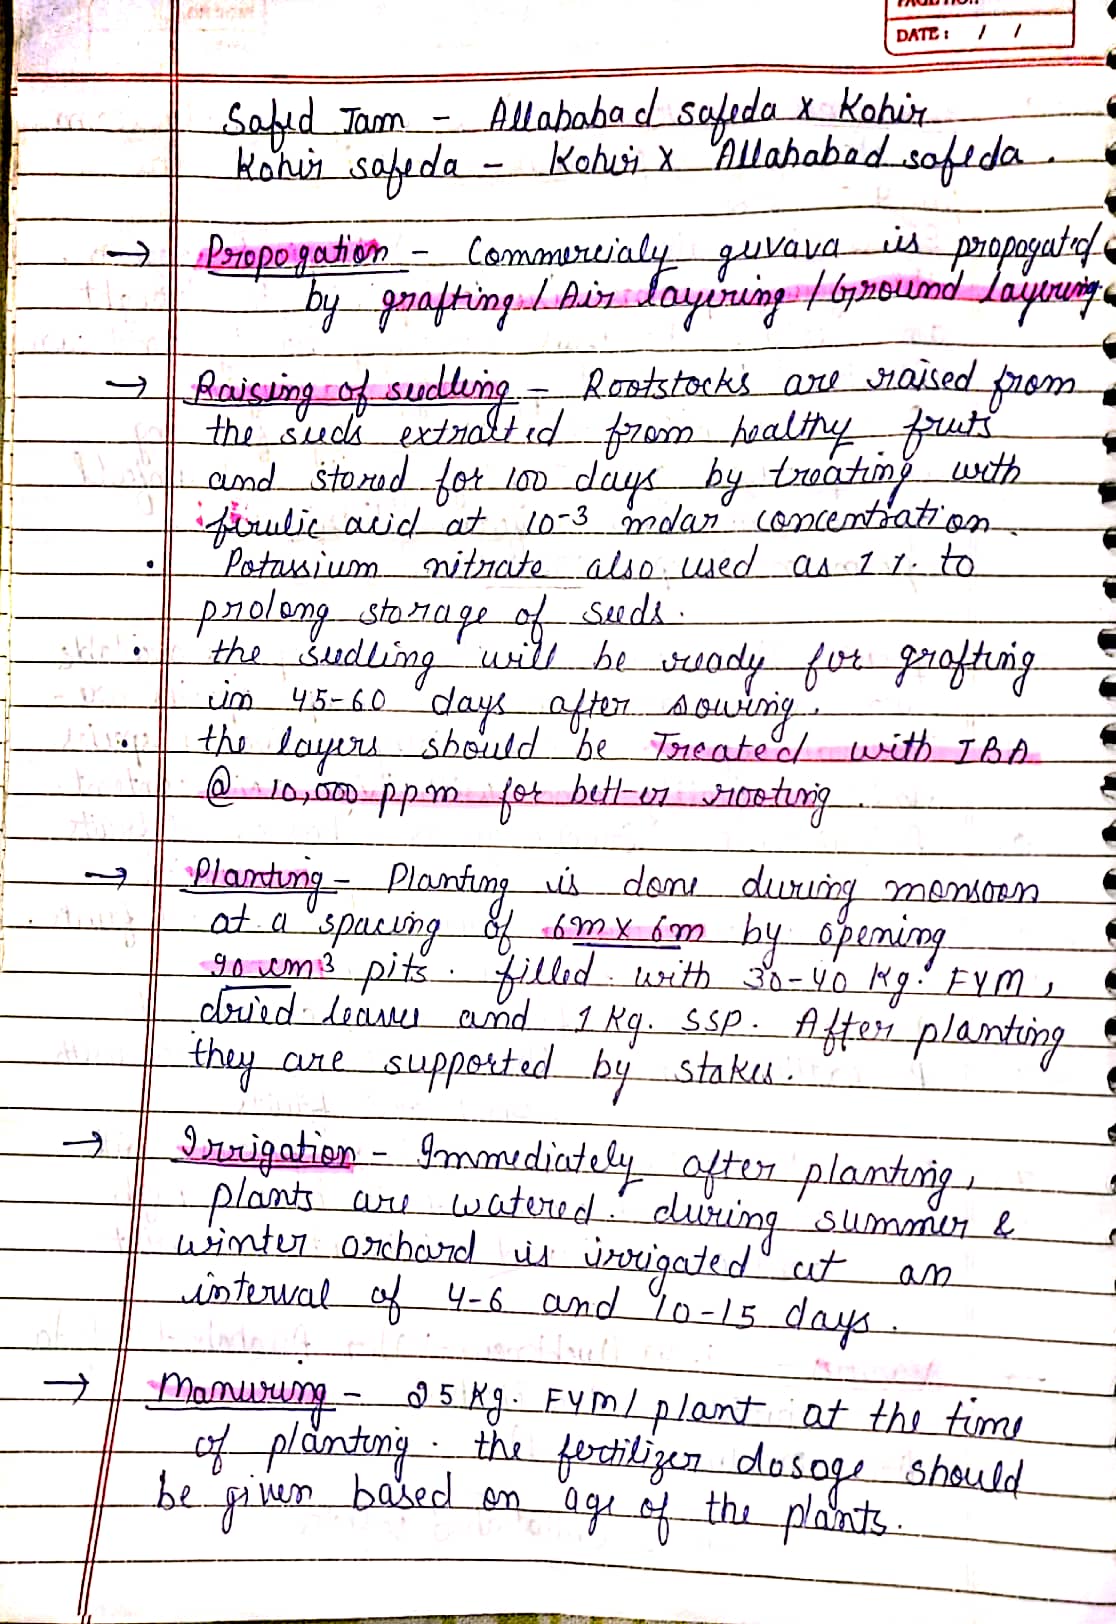 DATE : / /
Safed Jam - Allahabad safeda x Kohir
Kohir safeda - Kohir x Allahabad safeda .
→ Propogation - Commercialy guvava is propogated
by grafting / Air layering / Ground layering.
→ Raising of sudling - Rootstocks are raised from
the seeds extratted from healthy fruits
and stored for 100 days by treating with
firulic acid at 10-3 molar concentration.
• Potassium nitrate also used as 1 %. to
prolong storage of seeds.
• the sudling will be ready for grafting
in 45-60 days after sowing.
• the layers should be Treated with IBA
@ 10,000 ppm for better rooting.
→ Planting - Planting is done during monsoon
at a spacing of 6m x 6m by opening
90 cm3 pits. filled with 30-40 Kg. FYM,
dried leaves and 1 Kg. SSP. After planting
they are supported by stakes.
→ Irrigation - Immediately after planting,
plants are watered. during summer &
winter orchard is irrigated at an
interval of 4-6 and 10-15 days.
→ Manuring - 25 Kg. FYM/ plant at the time
of planting. the fertilizer dosage should
be given based on age of the plants.